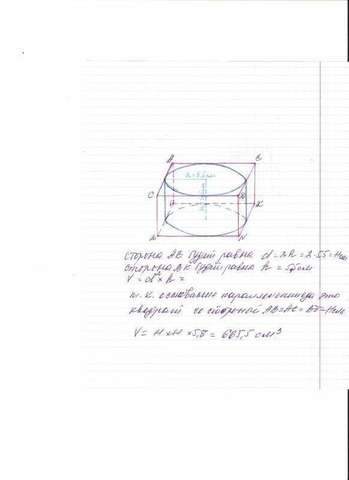 A
B
C
K
сторона АВ будет равна d=2R=2·5,5=11см
сторона ВК будет равна h = 5,5см
V = d² × h =
т.к. основанием параллепипеда это
квадрат со стороной АВ=АС= =11см
V= 11×11×5,5 = 665,5 см³